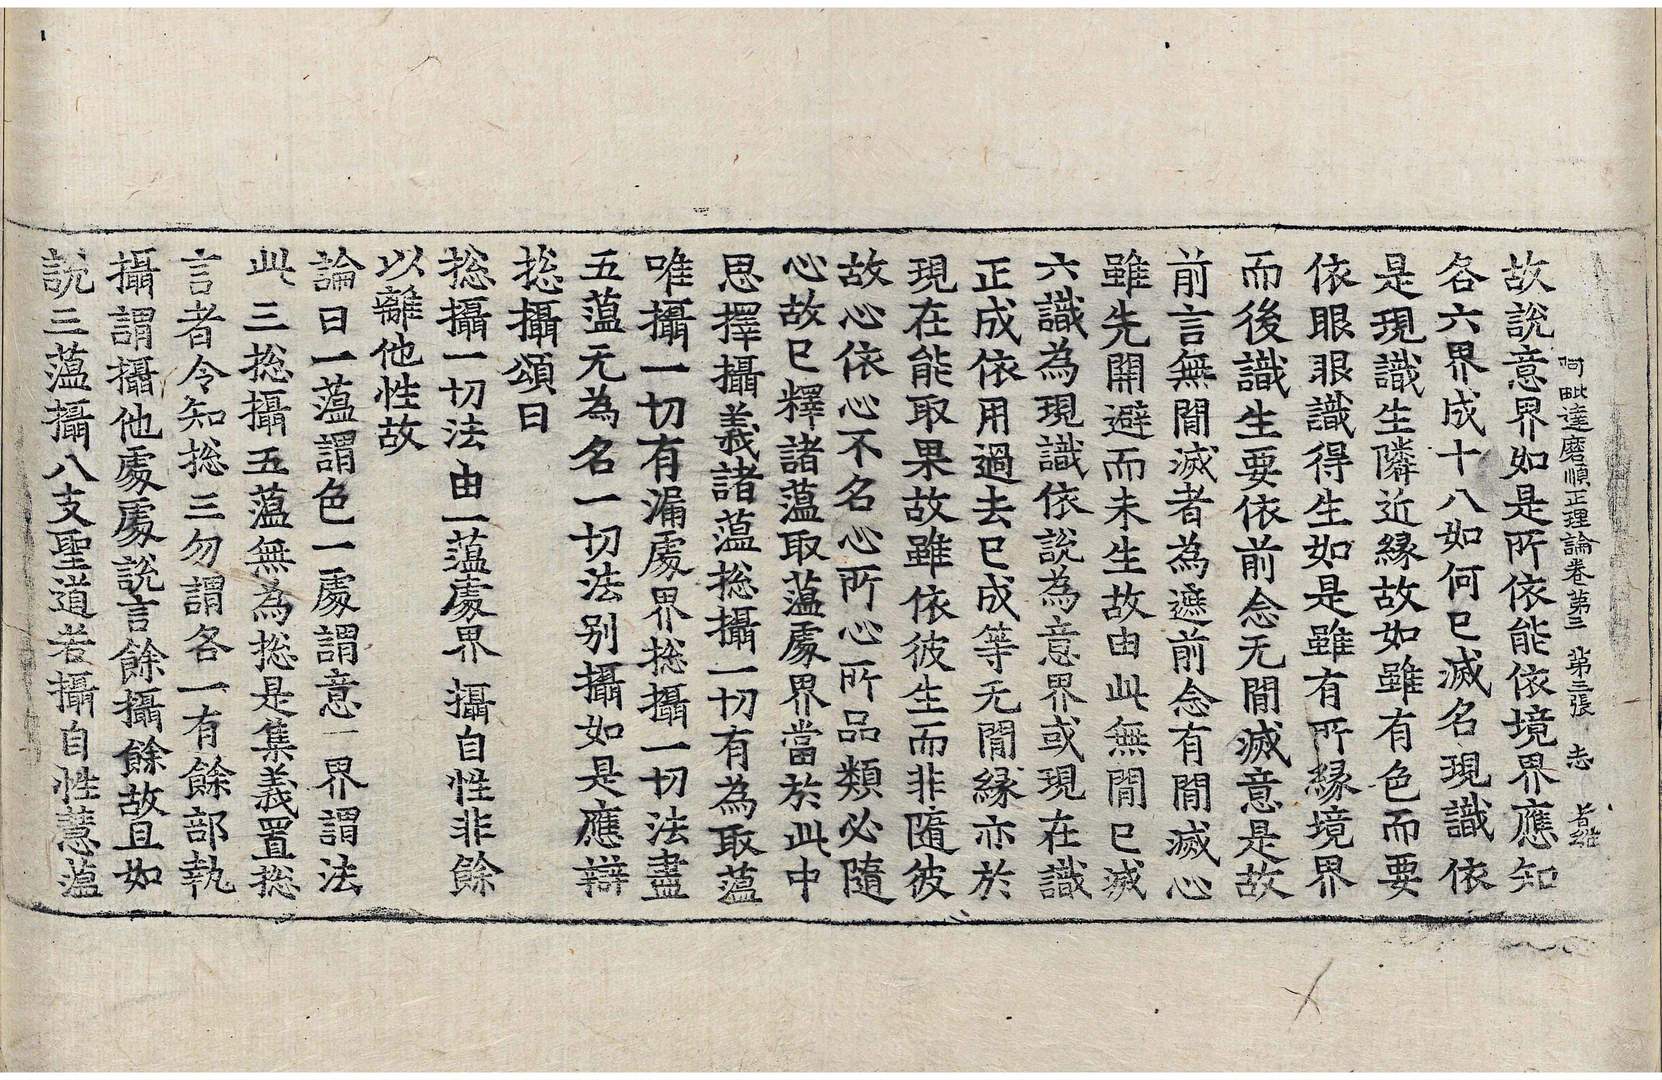 阿毗達磨順正理論卷第三 第三張 志
故說意界如是所依能依境界應知
各六界成十八如何已滅名現識依
是現識生隣近緣故如雖有色而要
依眼眼識得生如是雖有所緣境界
而後識生要依前念无間滅意是故
前言無間滅者為遮前念有間滅心
雖先開避而未生故由此無間已滅
六識為現識依說為意界或現在識
正成依用過去已成等无間緣亦於
現在能取果故雖依彼生而非隨彼
故心依心不名心所心所品類必隨
心故已釋諸薀取薀處界當於此中
思擇攝義諸薀揔攝一切有為取薀
唯攝一切有漏處界揔攝一切法盡
五薀无為名一切法別攝如是應辯
揔攝頌曰
揔攝一切法由一薀處界攝自性非餘
以離他性故
論曰一薀謂色一處謂意一界謂法
此三揔攝五薀無為揔是集義置揔
言者令知揔三勿謂各一有餘部執
攝謂攝他處處說言餘攝餘故且如
說三薀攝八支聖道若攝自性慧薀